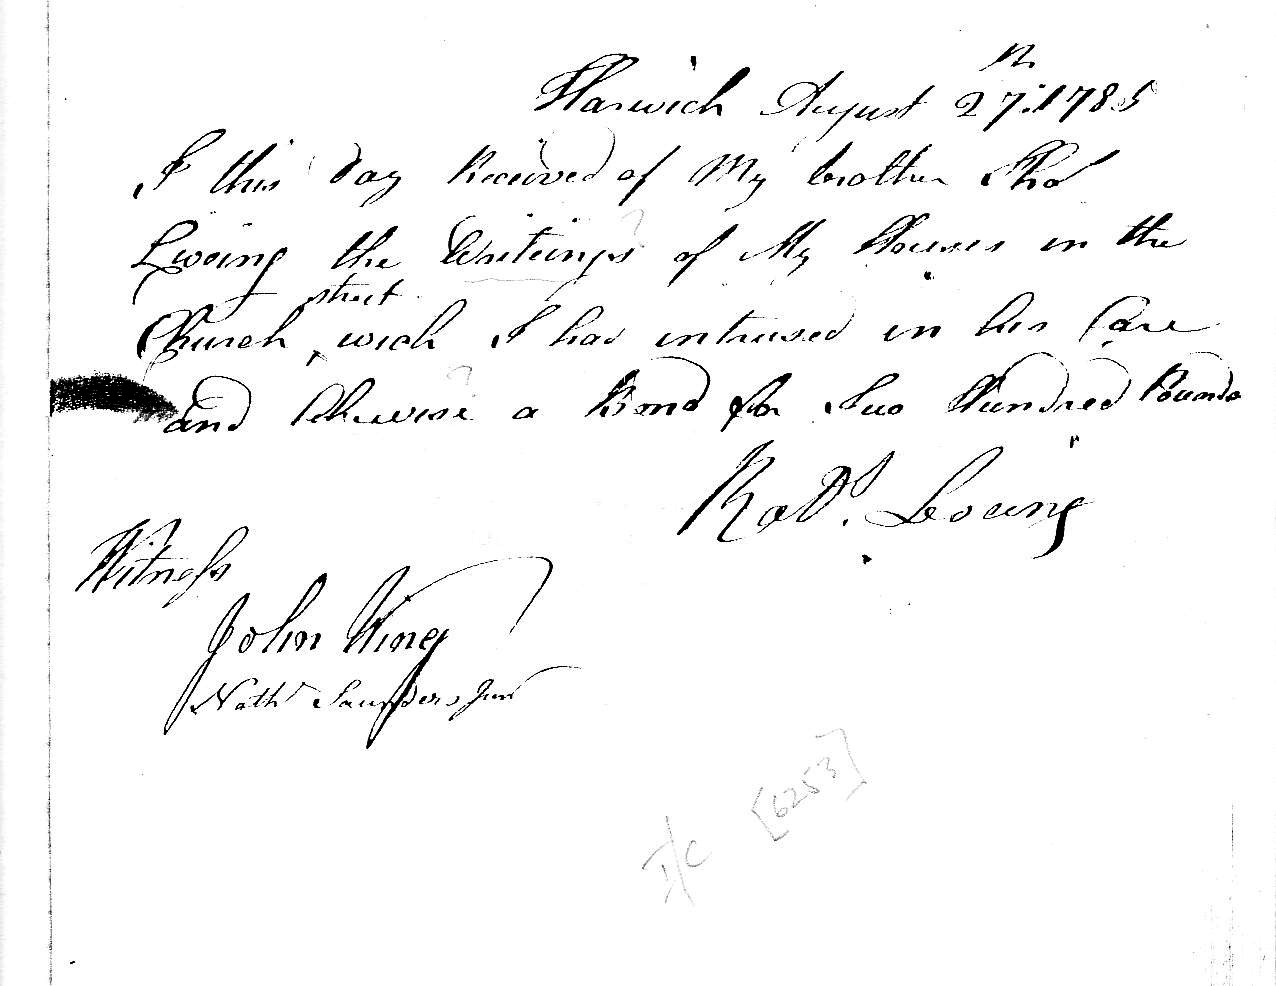 Harwich August 27th. 1785
I this Day Received of My brother Tho
the Writeings of My Houses in the
street
Church wich I had intrused in his Care
and likewise a Bond for Two Hundred Pounds
Robt.
Witness
John King
Nathl Saunders Junr
[6253]